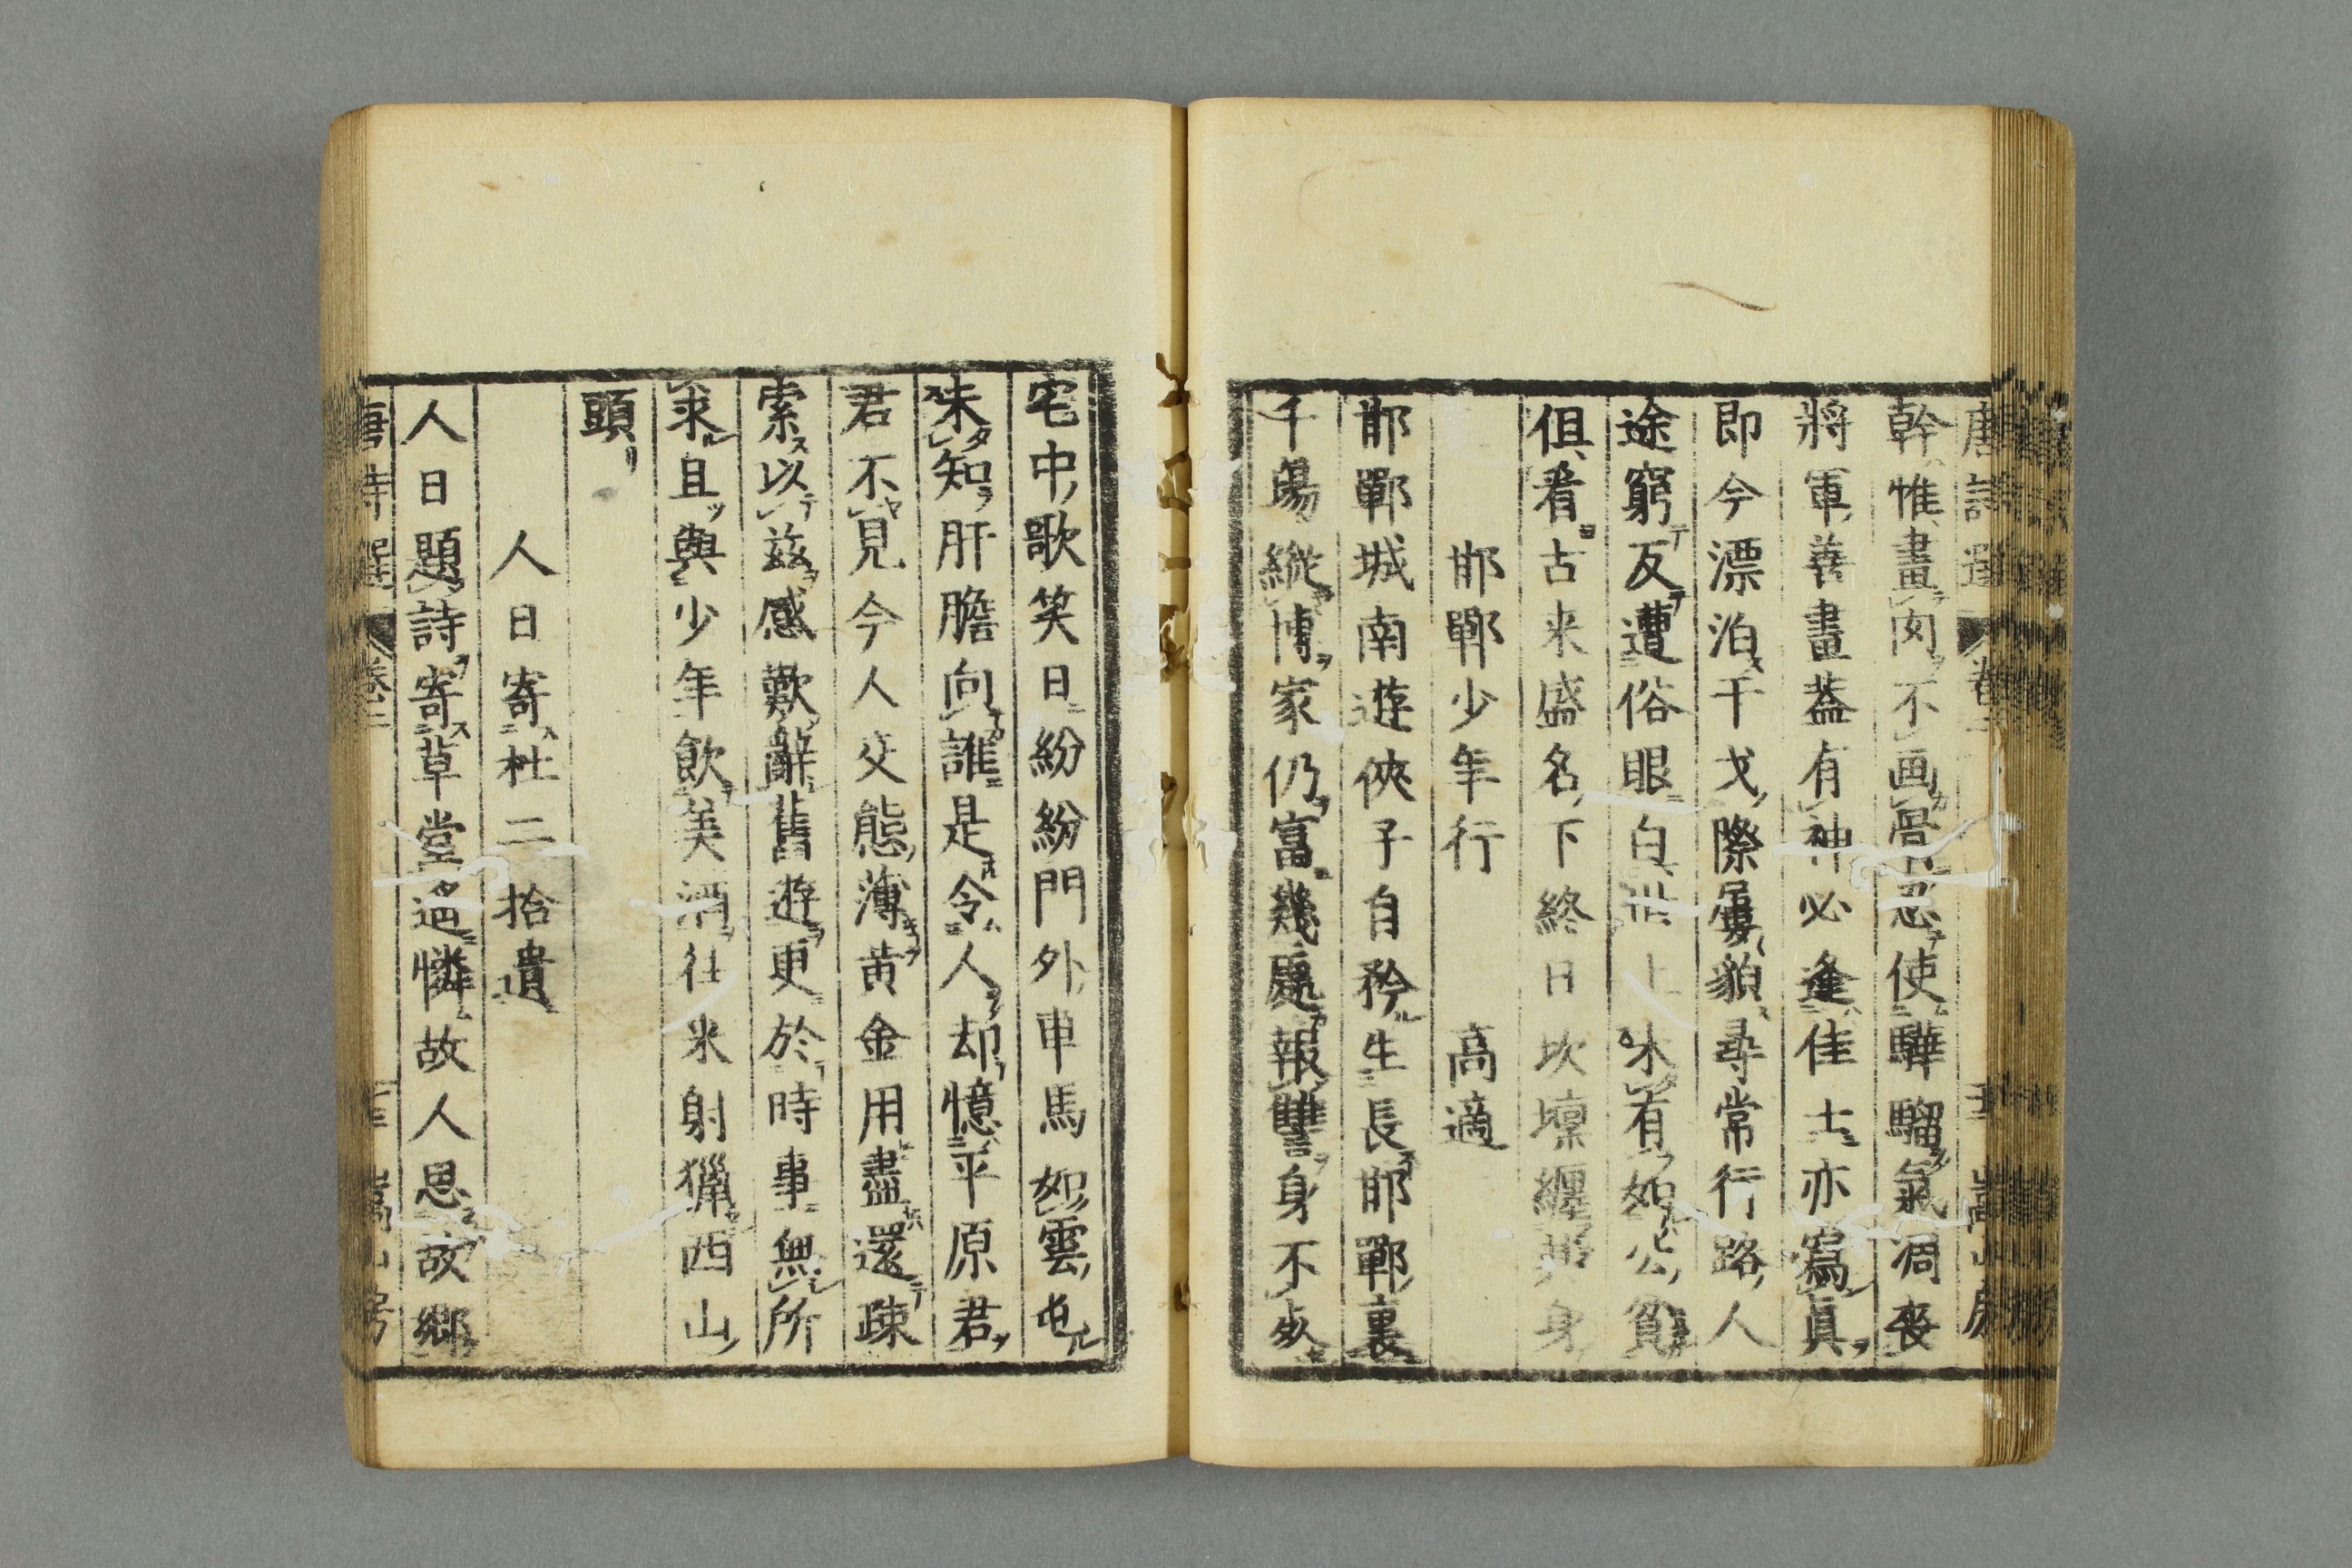 幹惟畫肉不画骨忍使驊騮氣凋喪
將軍善畫蓋有神必逢佳士亦寫真
即今漂泊干戈際屢貌尋常行路人
途窮反遭俗眼白世上未有如公貧
但看古来盛名下終日坎壈纏其身
邯鄲少年行 高適
邯鄲城南遊俠子自矜生長邯鄲裏
千場縱博家仍富幾處報讐身不死
宅中歌笑日紛紛門外車馬如雲屯
未知肝膽向誰是令人却憶平原君
君不見今人交態薄黄金用盡還疎
索以兹感歎辭舊遊更於時事無所
求且與少年飲美酒往来射獵西山
頭
人日寄杜二拾遺
人日題詩寄草堂遙憐故人思故鄉
唐詩選 卷二 嵩山房